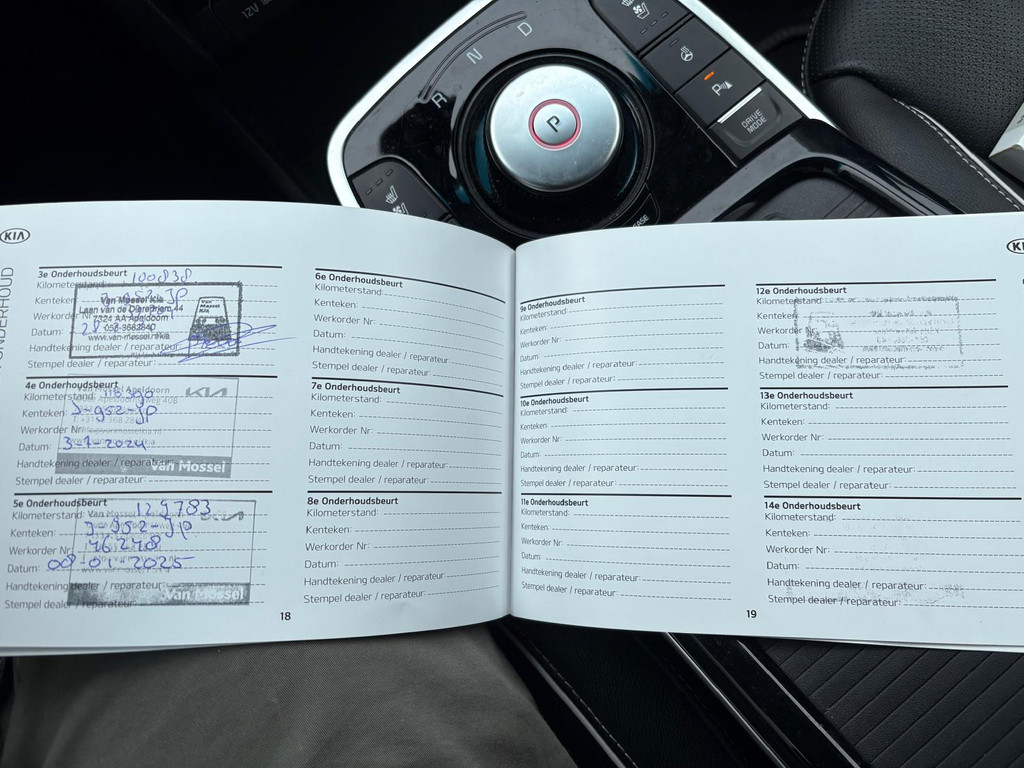 12V
R N D
P
DRIVE
MODE
KIA
ONDERHOUD
3e Onderhoudsbeurt 100838
Kilometerstand:
Kenteken:
Van Mossel Kia
Laan van de Dierenriem 44
7324 AA Apeldoorn
055-3682840
www.van-mossel.nl/kia
Van
Mossel
Kia
Werkorder Nr:
Datum:
Handtekening dealer / reparateur:
Stempel dealer / reparateur:
4e Onderhoudsbeurt
Kilometerstand:
Kenteken: J-952-JP
Werkorder Nr:
Datum: 3-1-2024
Handtekening dealer / reparateur:
Van Mossel
Stempel dealer / reparateur:
5e Onderhoudsbeurt
Kilometerstand: 129783
Kenteken: J-952-JP
Werkorder Nr: 76278
Datum: 08-01-2025
Handtekening dealer / reparateur:
Van Mossel
Stempel dealer / reparateur:
6e Onderhoudsbeurt
Kilometerstand:
Kenteken:
Werkorder Nr:
Datum:
Handtekening dealer / reparateur:
Stempel dealer / reparateur:
7e Onderhoudsbeurt
Kilometerstand:
Kenteken:
Werkorder Nr:
Datum:
Handtekening dealer / reparateur:
Stempel dealer / reparateur:
8e Onderhoudsbeurt
Kilometerstand:
Kenteken:
Werkorder Nr:
Datum:
Handtekening dealer / reparateur:
Stempel dealer / reparateur:
18
9e Onderhoudsbeurt
Kilometerstand:
Kenteken:
Werkorder Nr:
Datum:
Handtekening dealer / reparateur:
Stempel dealer / reparateur:
10e Onderhoudsbeurt
Kilometerstand:
Kenteken:
Werkorder Nr:
Datum:
Handtekening dealer / reparateur:
Stempel dealer / reparateur:
11e Onderhoudsbeurt
Kilometerstand:
Kenteken:
Werkorder Nr:
Datum:
Handtekening dealer / reparateur:
Stempel dealer / reparateur:
12e Onderhoudsbeurt
Kilometerstand:
Kenteken:
Werkorder Nr:
Datum:
Handtekening dealer / reparateur:
Stempel dealer / reparateur:
13e Onderhoudsbeurt
Kilometerstand:
Kenteken:
Werkorder Nr:
Datum:
Handtekening dealer / reparateur:
Stempel dealer / reparateur:
14e Onderhoudsbeurt
Kilometerstand:
Kenteken:
Werkorder Nr:
Datum:
Handtekening dealer / reparateur:
Stempel dealer / reparateur:
19